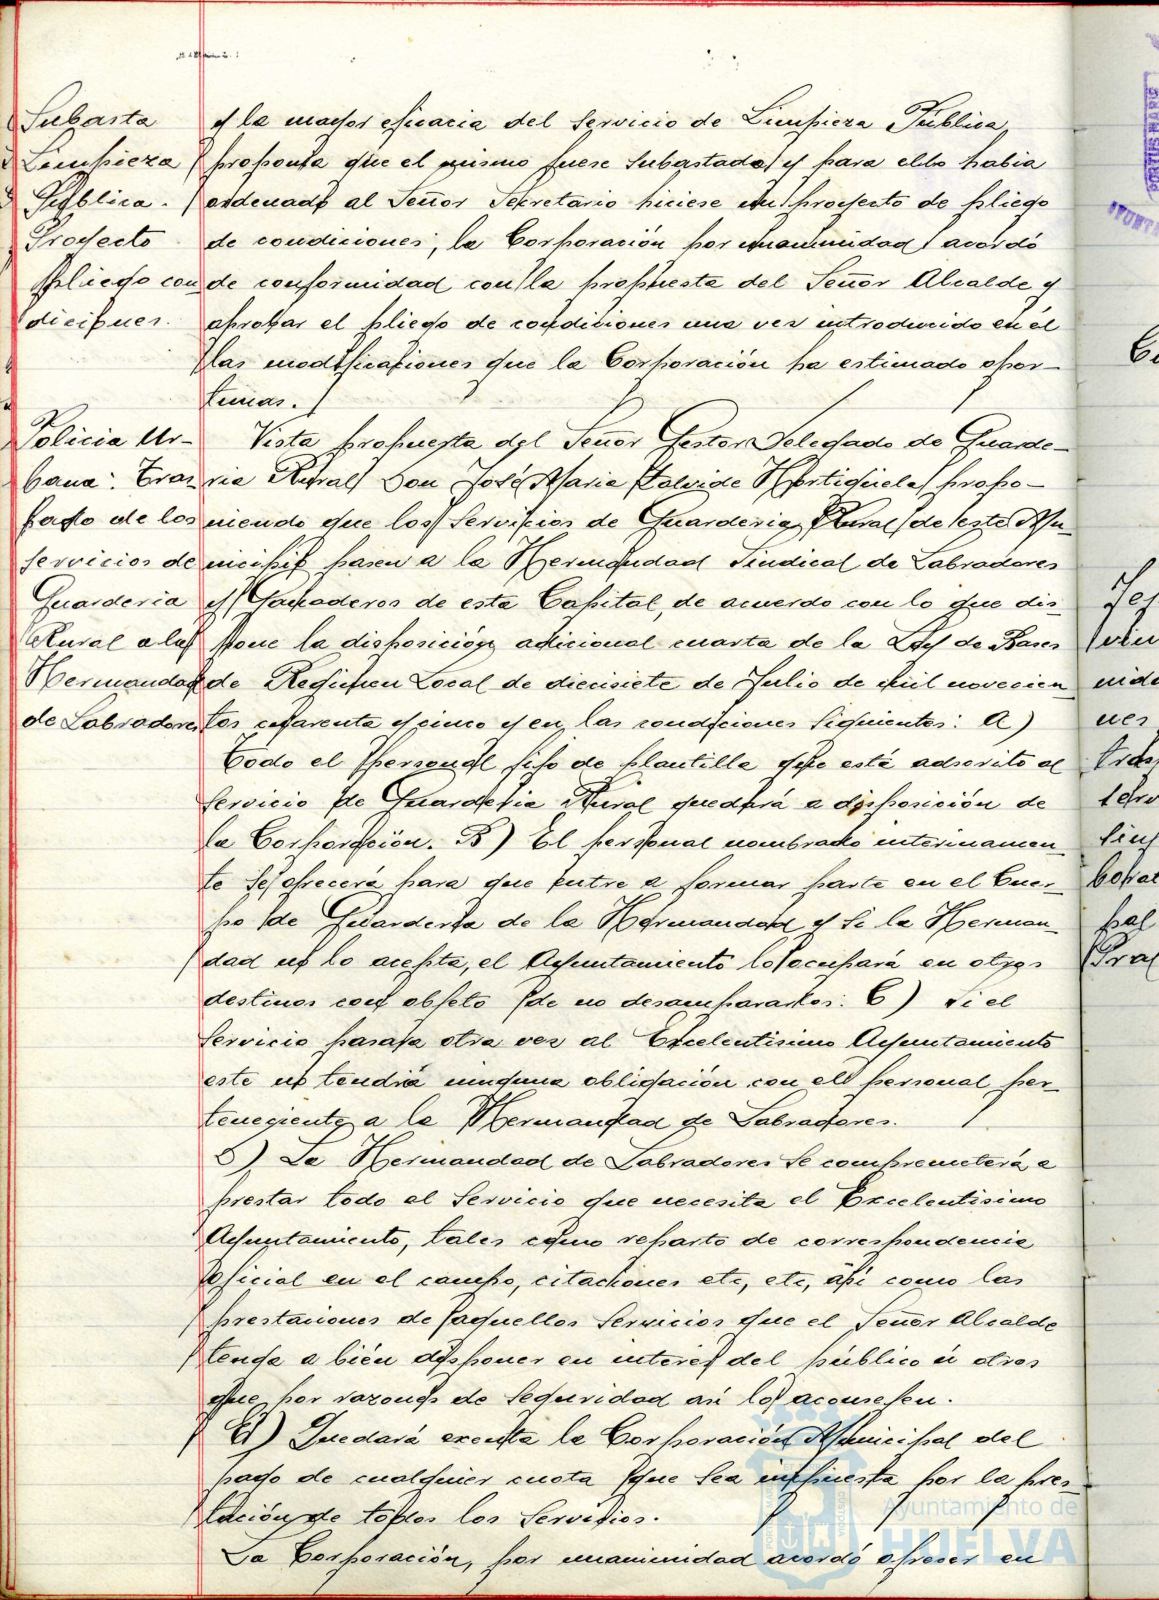 Subasta
Limpieza
Pública.
Proyecto
pliego con
diciones.
y la mayor eficacia del servicio de Limpieza Pública,
proponia que el mismo fuese subastado y para ello habia
ordenado al Señor Secretario hiciese un proyecto de pliego
de condiciones; la Corporación por unanimidad acordó
de conformidad con la propuesta del Señor Alcalde y
aprobar el pliego de condiciones una vez introducido en él
las modificaciones que la Corporación ha estimado opor-
tunas.
Policia Ur-
bana: Tras
paso de los
servicios de
Guarderia
Rural a la
Hermandad
de Labradores
Vista propuesta del Señor Gestor Delegado de Guarde-
ria Rural Don José Maria Hortigüela, propo-
niendo que los servicios de Guarderia Rural de este Mu-
nicipio pasen a la Hermandad Sindical de Labradores
y Ganaderos de esta Capital, de acuerdo con lo que dis-
pone la disposición adicional cuarta de la Ley de Bases
de Regimen Local de diecisiete de Julio de mil novecien
tos cuarenta y cinco y en las condiciones siguientes: A)
Todo el personal fijo de plantilla que está adscrito al
servicio de Guarderia Rural quedará a disposición de
la Corporación. B) El personal nombrado interinamen
te se ofrecerá para que entre a formar parte en el Cuer-
po de Guarderia de la Hermandad y si la Herman-
dad no lo acepta, el Ayuntamiento lo ocupará en otros
destinos con objeto de no desampararlos. C) Si el
servicio pasara otra vez al Excelentisimo Ayuntamiento
este no tendrá ninguna obligación con el personal per-
teneciente a la Hermandad de Labradores.
D) La Hermandad de Labradores se comprometerá a
prestar todo el servicio que necesita el Excelentisimo
Ayuntamiento, tales como reparto de correspondencia
oficial en el campo, citaciones etc, etc, asi como las
prestaciones de aquellos servicios que el Señor Alcalde
tenga a bién disponer en interes del público ú otros
que por razones de seguridad asi lo aconsejen.
E) Quedará exenta la Corporación Municipal del
pago de cualquier cuota que sea impuesta por la pres-
tación de todos los servicios.
La Corporación, por unanimidad acordó ofrecer en
Ayuntamiento de
HUELVA